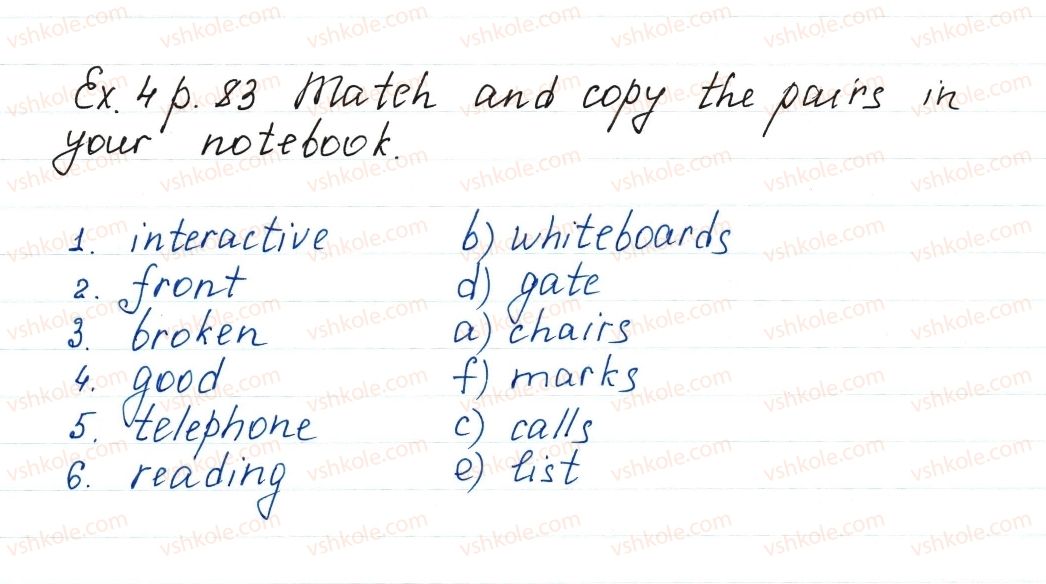 Ex. 4 p. 83 Match and copy the pairs in
your notebook.
1. interactive b) whiteboards
2. front d) gate
3. broken a) chairs
4. good f) marks
5. telephone c) calls
6. reading e) list